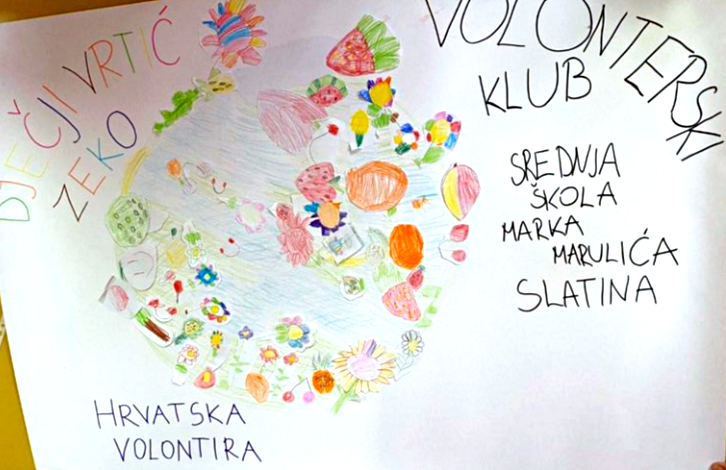 DJEČJI VRTIĆ
ZEKO
VOLONTERSKI
KLUB
SREDNJA
ŠKOLA
MARKA
MARULIĆA
SLATINA
HRVATSKA
VOLONTIRA